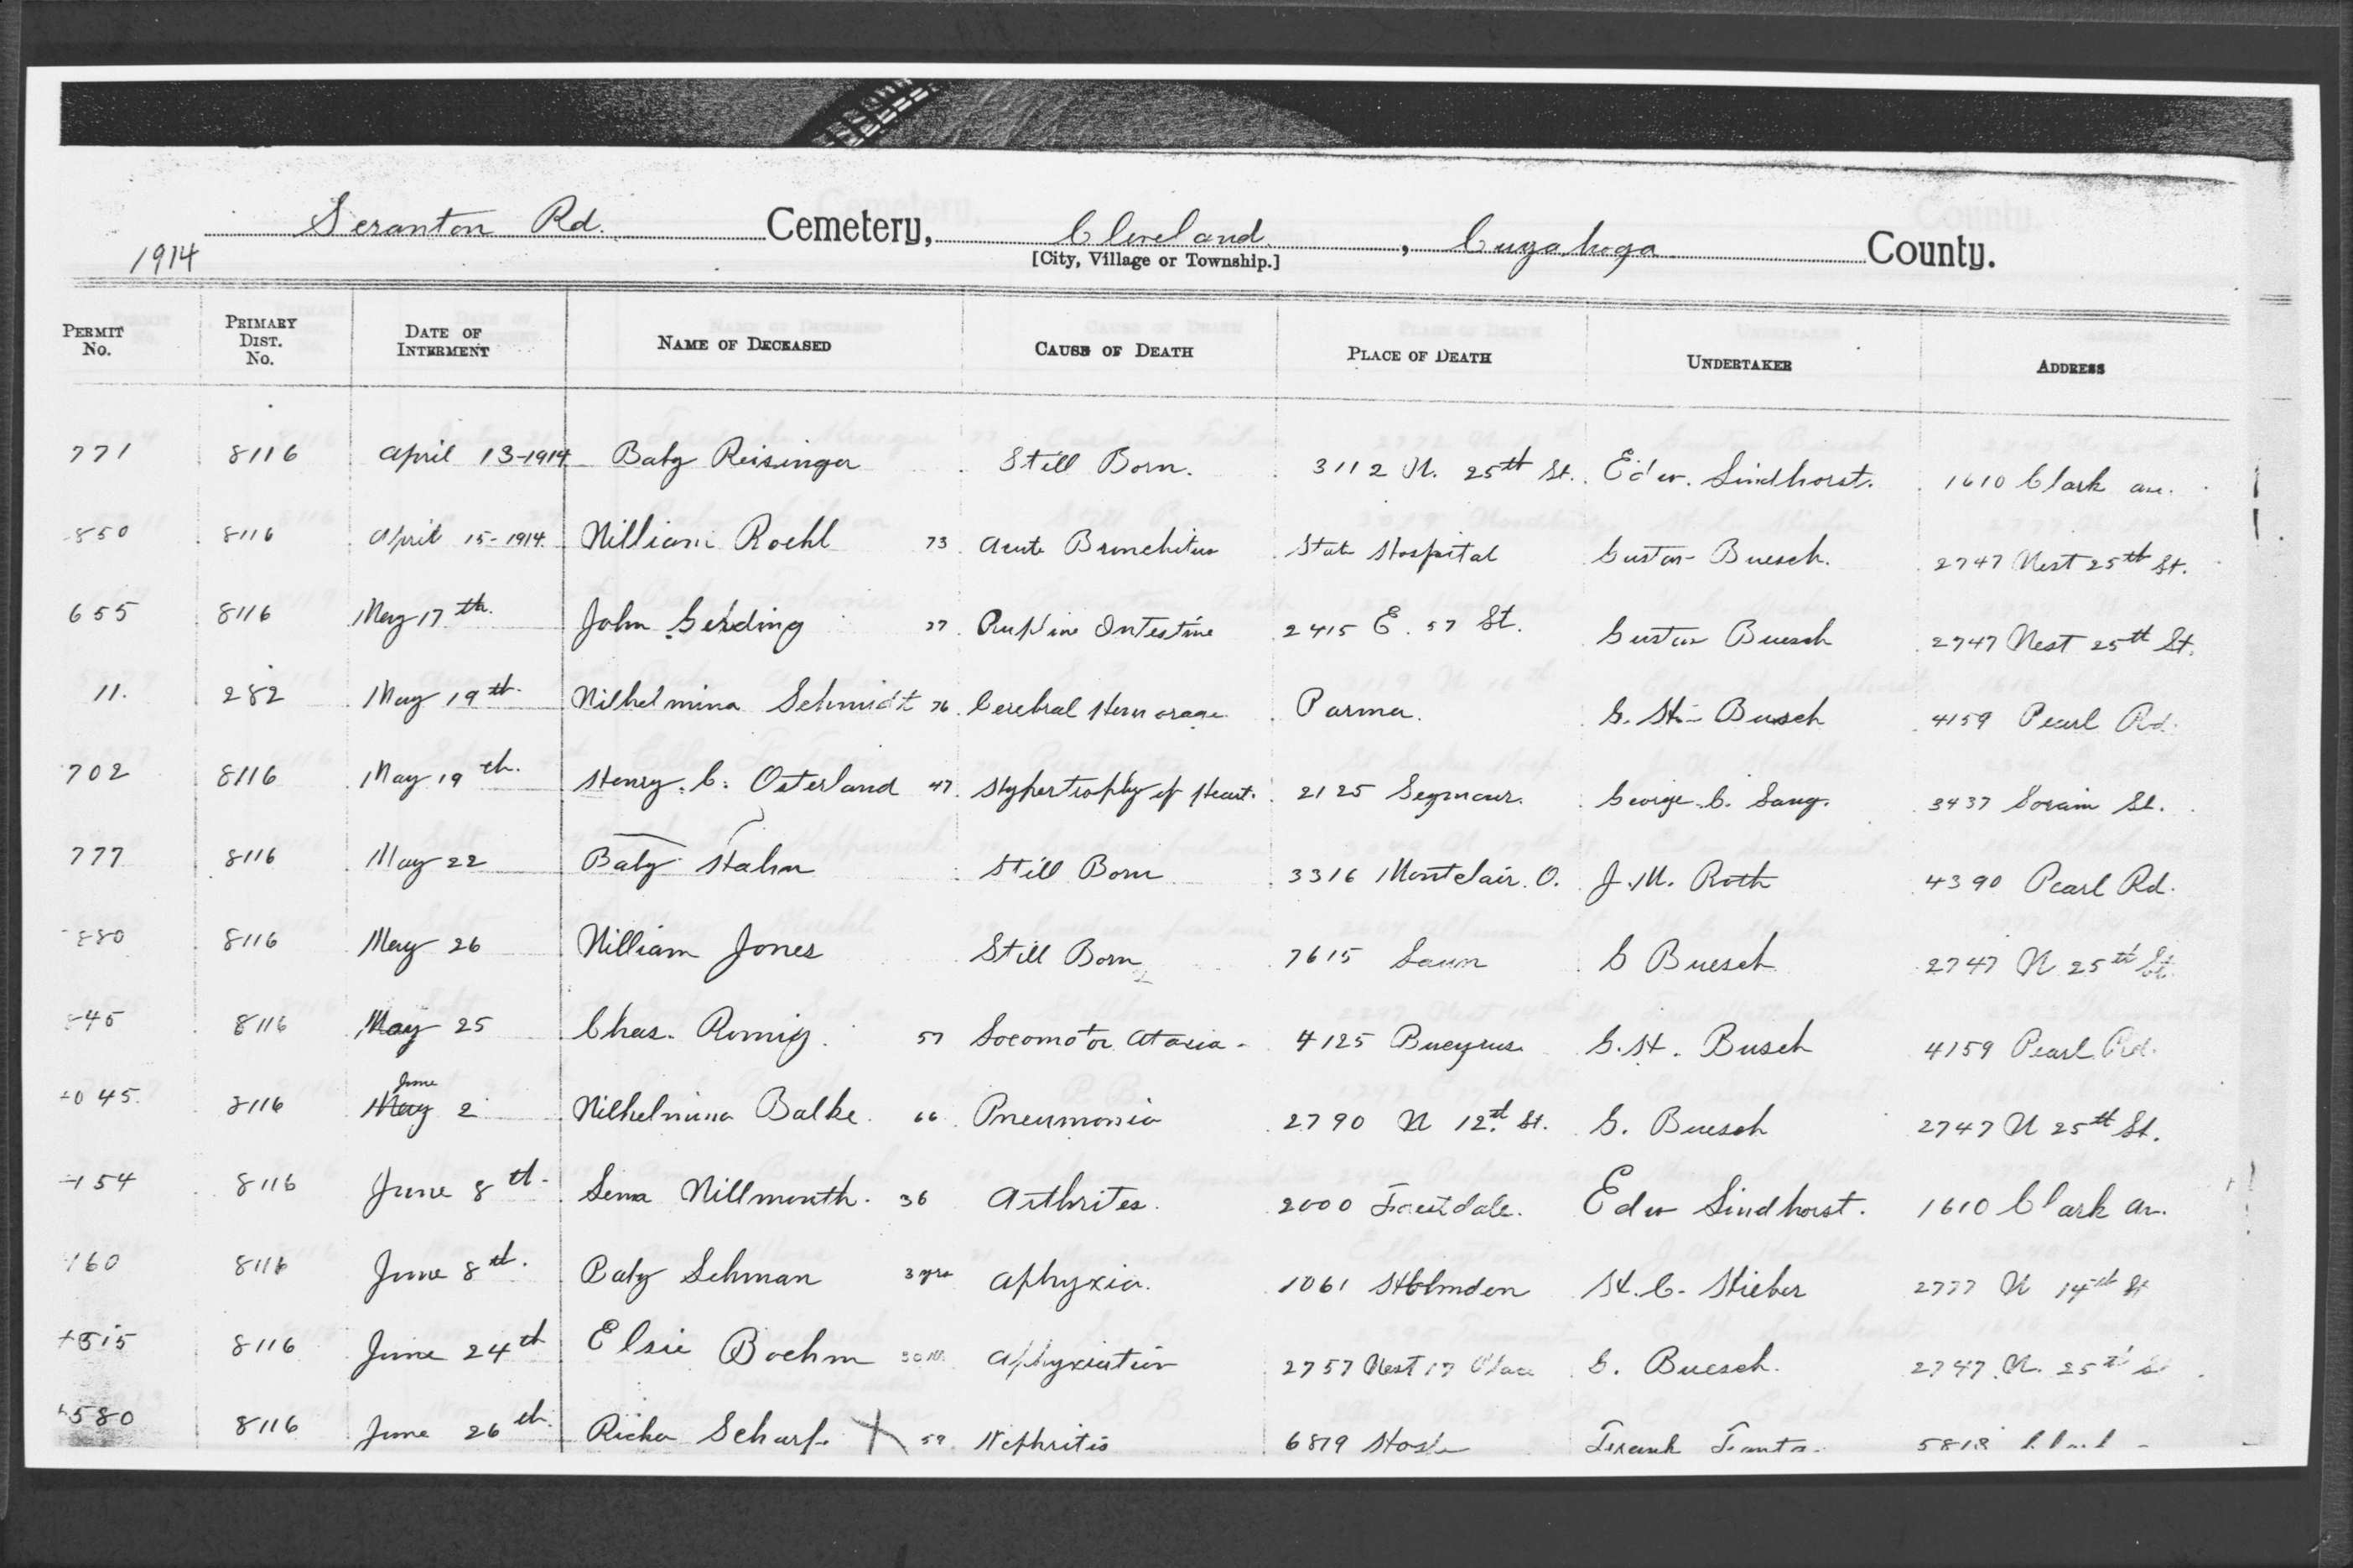 Scranton Rd. Cemetery, Cleveland, Cuyahoga County.
1914 [City, Village or Township.]
PERMIT No. PRIMARY DIST. No. DATE OF INTERMENT NAME OF DECEASED CAUSE OF DEATH PLACE OF DEATH UNDERTAKER ADDRESS
771 8116 April 13-1914 Baby Reisinger Still Born. 3112 W. 25th St. Edw. Lindhorst. 1610 Clark av.
850 8116 April 15-1914 William Roehl 73 Acute Bronchitus State Hospital Gustav Buesch. 2747 West 25th St.
655 8116 May 17th. John Gerding 27 Intestine 2415 E. 57 St. Gustav Buesch 2747 West 25th St.
11. 282 May 19th. Wilhelmina Schmidt 76. Cerebral Hemorage Parma. G. H. Busch 4159 Pearl Rd.
702 8116 May 19th. Henry. C. Osterland 47. Hypertrophy of Heart. 2125 Seymour. George C. Lang. 3437 Lorain St.
777 8116 May 22 Baby Hahn Still Born 3316 Montclair. O. J. M. Roth 4390 Pearl Rd.
880 8116 May 26 William Jones Still Born 7615 Lawn G Buesch 2747 W 25th St.
45 8116 May 25 Chas. Romig. 57 Locomotor Ataxia 4125 Bucyrus G. H. Busch 4159 Pearl Rd.
045 8116 June
May 2 Wilhelmina Balke. 66. Pneumonia 2790 W 12th St. G. Buesch 2747 W 25th St.
154 8116 June 8th. Lena Willmonth. 36 Arthrites. 2000 Edw Lindhorst. 1610 Clark av.
160 8116 June 8th. Baby Lehman 3 yrs aphyxia. 1061 Holmden H. C. Stieber 2777 W 14th St
515 8116 June 24th Elsie Boehm aphyxiation 2757 West 17 Place G. Buesch. 2747 W. 25th St
580 8116 June 26th. Ricka Scharf. X 59. Nephritis 6819 Frank Fanta. 5818